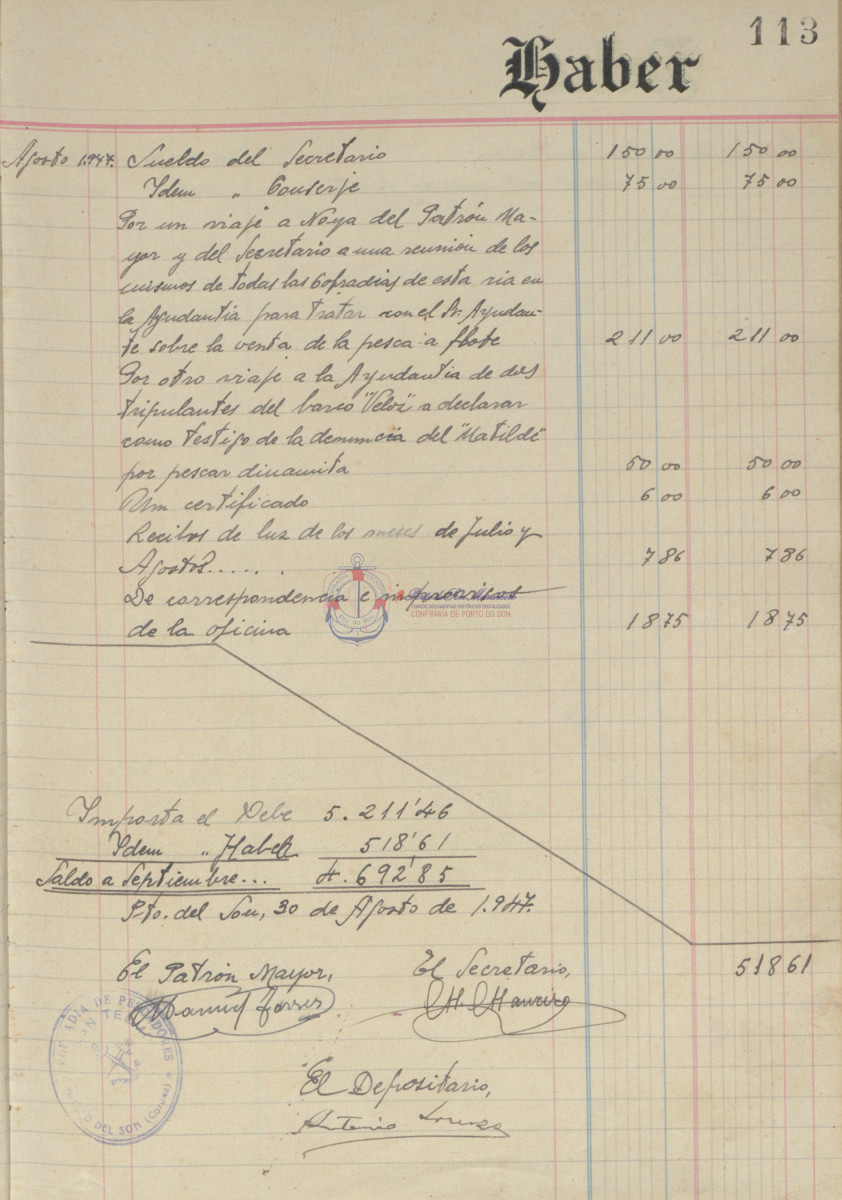 113
Haber
Agosto 1.947. Sueldo del Secretario 150 00 150 00
Idem " Conserje 75 00 75 00
Por un viaje a Noya del Patrón Ma-
yor y del Secretario a una reunión de los
mismos de todas las Cofradias de esta ria en
la Ayudantia para tratar con el Sr. Ayudan-
te sobre la venta de la pesca a flote 211 00 211 00
Por otro viaje a la Ayudantia de dos
tripulantes del barco "Veloz" a declarar
como testigo de la denuncia del "Matilde"
por pescar dinamita 50 00 50 00
Um certificado 6 00 6 00
Recibos de luz de los meses de Julio y
Agosto...... 7 86 7 86
De correspondencia e
de la oficina 18 75 18 75
CONFRARÍA DE PORTO DO SON
Importa el Debe 5.211'46
Idem " Haber 518'61
Saldo a Septiembre... 4.692'85
Pto. del Son, 30 de Agosto de 1.947.
518 61
El Patrón Mayor, El Secretario,
Manuel
COFRADIA DE PESCADORES
DEL SON (Coruña)
El Depositario,
Antonio